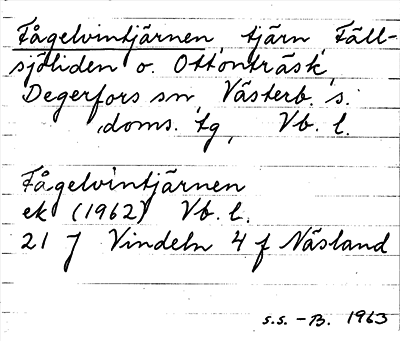 Fågelvintjärnen, tjärn, Fäll-
sjöliden o. Ottonträsk,
Degerfors sn, Västerb. s.
doms. tg, Vb. l.
Fågelvintjärnen
ek (1962) Vb. l.
21 J Vindeln 4 f Näsland
s.s. - B. 1963